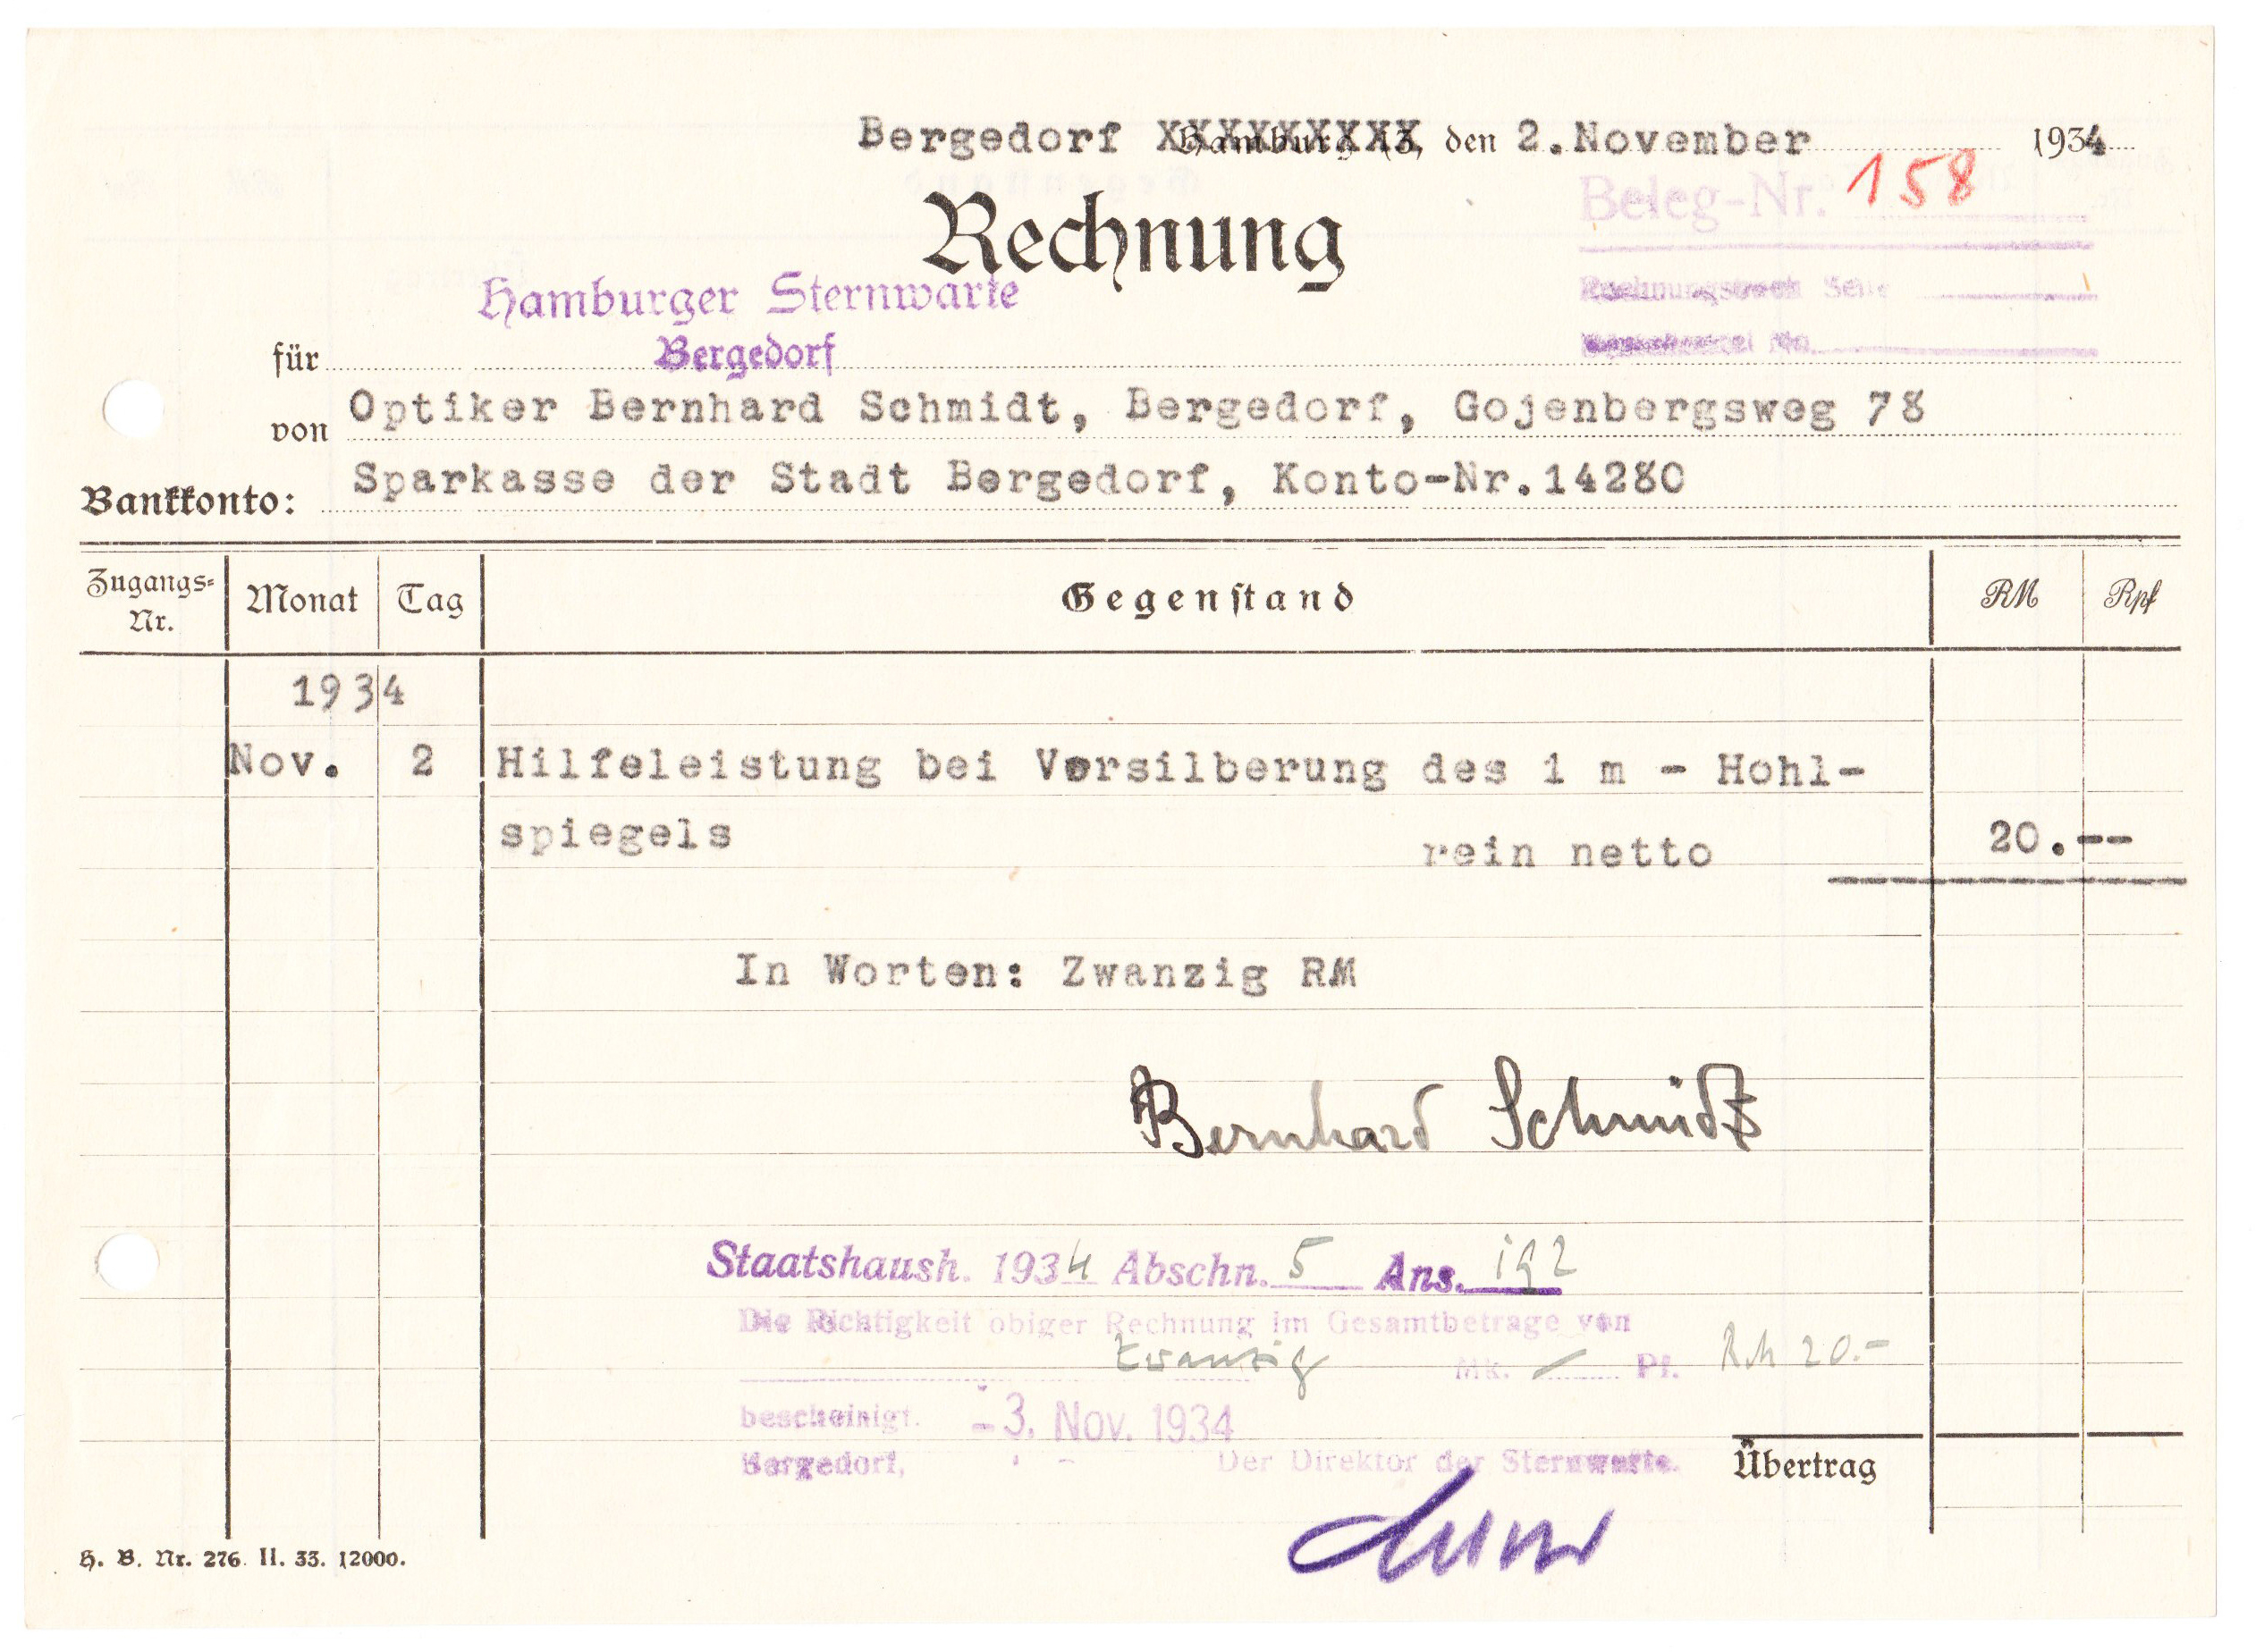 Bergedorf XXXXXXXXX den 2.November 1934
Beleg-Nr. 158
Rechnung
Seite
Hamburger Sternwarte
für Bergedorf
von Optiker Bernhard Schmidt, Bergedorf, Gojenbergsweg 78
Bankkonto: Sparkasse der Stadt Bergedorf, Konto-Nr.14280
Zugangs-Nr. Monat Tag Gegenstand RM Rpf
1934
Nov. 2 Hilfeleistung bei Versilberung des 1 m - Hohl-
spiegels rein netto 20.--
In Worten: Zwanzig RM
Bernhard Schmidt
Staatshaush. 1934 Abschn. 5 Ans.
Die Richtigkeit obiger Rechnung im Gesamtbetrage von
zwanzig Mk. Pf. RM 20.-
bescheinigt.
-3. Nov. 1934
Bergedorf, Der Direktor der Sternwarte.
Übertrag
H. B. Nr. 276. II. 33. 12000.